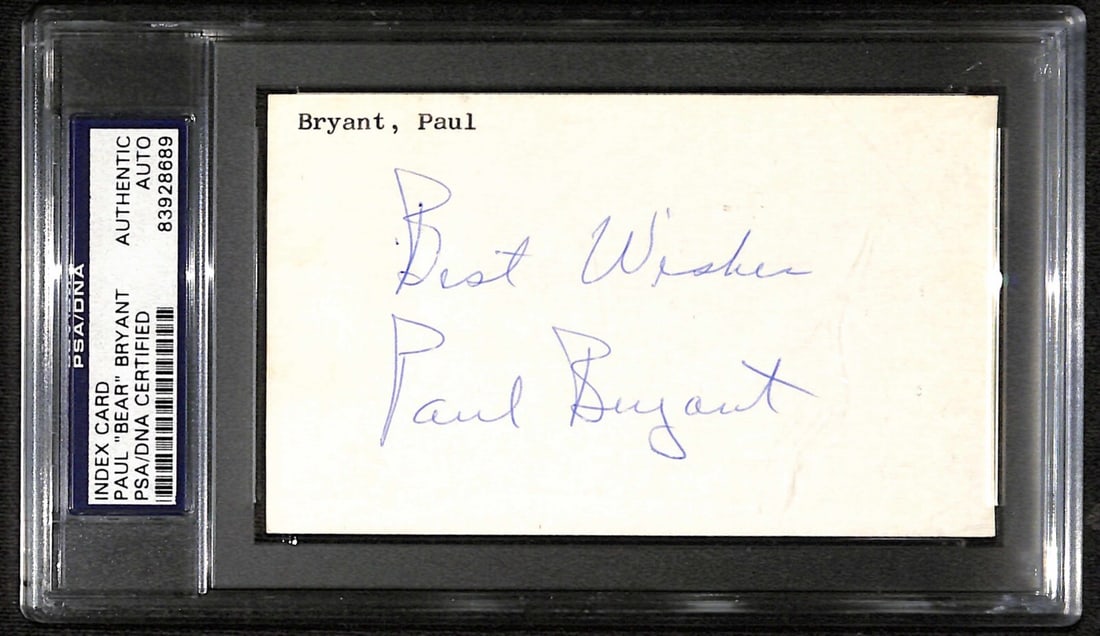 PSA/DNA
INDEX CARD
PAUL "BEAR" BRYANT
PSA/DNA CERTIFIED
AUTHENTIC
AUTO
83928689
Bryant, Paul
Best Wishes
Paul Bryant